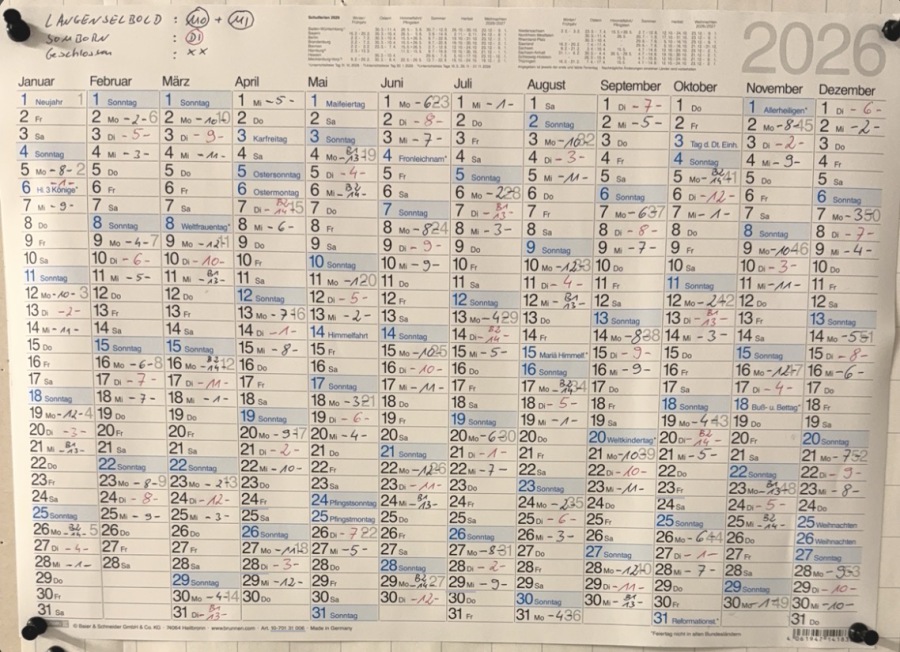 LANGENSELBOLD : MO + MI
SOMBORN : DI
Geschlossen : x x
2026
Januar Februar März April Mai Juni Juli August September Oktober November Dezember
1 Neujahr 1 Sonntag 1 Sonntag 1 Mi -5- 1 Maifeiertag 1 Mo -6- 23 1 Mi -1- 1 Sa 1 Di -7- 1 Do 1 Allerheiligen* 1 Di -6-
2 Fr 2 Mo -2- 6 2 Mo -10- 10 2 Do 2 Sa 2 Di -8- 2 Do 2 Sonntag 2 Mi -5- 2 Fr 2 Mo -8- 45 2 Mi -2-
3 Sa 3 Di -5- 3 Di -9- 3 Karfreitag 3 Sonntag 3 Mi -7- 3 Fr 3 Mo -10- 32 3 Do 3 Tag d. Dt. Einh. 3 Di -2- 3 Do
4 Sonntag 4 Mi -3- 4 Mi -11- 4 Sa 4 Mo B1 -13- 19 4 Fronleichnam* 4 Sa 4 Di -3- 4 Fr 4 Sonntag 4 Mi -9- 4 Fr
5 Mo -8- 2 5 Do 5 Do 5 Ostersonntag 5 Di -4- 5 Fr 5 Sonntag 5 Mi -11- 5 Sa 5 Mo B2 -14- 41 5 Do 5 Sa
6 Hl. 3 Könige* -1- 6 Fr 6 Fr 6 Ostermontag 6 Mi B2 -14- 6 Sa 6 Mo -2- 28 6 Do 6 Sonntag 6 Di -12- 6 Fr 6 Sonntag
7 Mi -9- 7 Sa 7 Sa 7 Di B2 -14- 15 7 Do 7 Sonntag 7 Di B1 -13- 7 Fr 7 Mo -6- 37 7 Mi -1- 7 Sa 7 Mo -3- 50
8 Do 8 Sonntag 8 Weltfrauentag* 8 Mi -6- 8 Fr 8 Mo -8- 24 8 Mi -3- 8 Sa 8 Di -8- 8 Do 8 Sonntag 8 Di -7-
9 Fr 9 Mo -4- 7 9 Mo -12- 11 9 Do 9 Sa 9 Di -9- 9 Do 9 Sonntag 9 Mi -7- 9 Fr 9 Mo -10- 46 9 Mi -4-
10 Sa 10 Di -6- 10 Di -10- 10 Fr 10 Sonntag 10 Mi -9- 10 Fr 10 Mo -12- 33 10 Do 10 Sa 10 Di -3- 10 Do
11 Sonntag 11 Mi -5- 11 Mi B1 -13- 11 Sa 11 Mo -1- 20 11 Do 11 Sa 11 Di -4- 11 Fr 11 Sonntag 11 Mi -11- 11 Fr
12 Mo -10- 3 12 Do 12 Do 12 Sonntag 12 Di -5- 12 Fr 12 Sonntag 12 Mi B1 -13- 12 Sa 12 Mo -2- 42 12 Do 12 Sa
13 Di -2- 13 Fr 13 Fr 13 Mo -7- 16 13 Mi -2- 13 Sa 13 Mo -4- 29 13 Do 13 Sonntag 13 Di B1 -13- 13 Fr 13 Sonntag
14 Mi -11- 14 Sa 14 Sa 14 Di -1- 14 Himmelfahrt 14 Sonntag 14 Di B2 -14- 14 Fr 14 Mo -8- 38 14 Mi -3- 14 Sa 14 Mo -5- 51
15 Do 15 Sonntag 15 Sonntag 15 Mi -8- 15 Fr 15 Mo -10- 25 15 Mi -5- 15 Mariä Himmelf.* 15 Di -9- 15 Do 15 Sonntag 15 Di -8-
16 Fr 16 Mo -6- 8 16 Mo B2 -14- 12 16 Do 16 Sa 16 Di -10- 16 Do 16 Sonntag 16 Mi -9- 16 Fr 16 Mo -12- 47 16 Mi -6-
17 Sa 17 Di -7- 17 Di -11- 17 Fr 17 Sonntag 17 Mi -11- 17 Fr 17 Mo B2 -14- 34 17 Do 17 Sa 17 Di -4- 17 Do
18 Sonntag 18 Mi -7- 18 Mi -1- 18 Sa 18 Mo -3- 21 18 Do 18 Sa 18 Di -5- 18 Fr 18 Sonntag 18 Buß- u. Bettag* 18 Fr
19 Mo -12- 4 19 Do 19 Do 19 Sonntag 19 Di -6- 19 Fr 19 Sonntag 19 Mi -1- 19 Sa 19 Mo -4- 43 19 Do 19 Sa
20 Di -3- 20 Fr 20 Fr 20 Mo -9- 17 20 Mi -4- 20 Sa 20 Mo -6- 30 20 Do 20 Weltkindertag* 20 Di B2 -14- 20 Fr 20 Sonntag
21 Mi B1 -13- 21 Sa 21 Sa 21 Di -2- 21 Do 21 Sonntag 21 Di -1- 21 Fr 21 Mo -10- 39 21 Mi -5- 21 Sa 21 Mo -7- 52
22 Do 22 Sonntag 22 Sonntag 22 Mi -10- 22 Fr 22 Mo -12- 26 22 Mi -7- 22 Sa 22 Di -10- 22 Do 22 Sonntag 22 Di -9-
23 Fr 23 Mo -8- 9 23 Mo -2- 13 23 Do 23 Sa 23 Di -11- 23 Do 23 Sonntag 23 Mi -11- 23 Fr 23 Mo B1 -13- 48 23 Mi -8-
24 Sa 24 Di -8- 24 Di -12- 24 Fr 24 Pfingstsonntag 24 Mi B1 -13- 24 Fr 24 Mo -2- 35 24 Do 24 Sa 24 Di -5- 24 Do
25 Sonntag 25 Mi -9- 25 Mi -3- 25 Sa 25 Pfingstmontag 25 Do 25 Sa 25 Di -6- 25 Fr 25 Sonntag 25 Mi B2 -14- 25 Weihnachten
26 Mo B2 -14- 5 26 Do 26 Do 26 Sonntag 26 Di -7- 22 26 Fr 26 Sonntag 26 Mi -3- 26 Sa 26 Mo -6- 44 26 Do 26 Weihnachten
27 Di -4- 27 Fr 27 Fr 27 Mo -11- 18 27 Mi -5- 27 Sa 27 Mo -8- 31 27 Do 27 Sonntag 27 Di -1- 27 Fr 27 Sonntag
28 Mi -1- 28 Sa 28 Sa 28 Di -3- 28 Do 28 Sonntag 28 Di -2- 28 Fr 28 Mo -12- 40 28 Mi -7- 28 Sa 28 Mo -9- 53
29 Do 29 Sonntag 29 Mi -12- 29 Fr 29 Mo B2 -14- 27 29 Mi -9- 29 Sa 29 Di -11- 29 Do 29 Sonntag 29 Di -10-
30 Fr 30 Mo -4- 14 30 Do 30 Sa 30 Di -12- 30 Do 30 Sonntag 30 Mi B1 -13- 30 Fr 30 Mo -1- 49 30 Mi -10-
31 Sa 31 Di B1 -13- 31 Sonntag 31 Fr 31 Mo -4- 36 31 Reformationst.* 31 Do
© Baier & Schneider GmbH & Co. KG · 74064 Heilbronn · www.brunnen.com · Made in Germany
*Feiertag nicht in allen Bundesländern